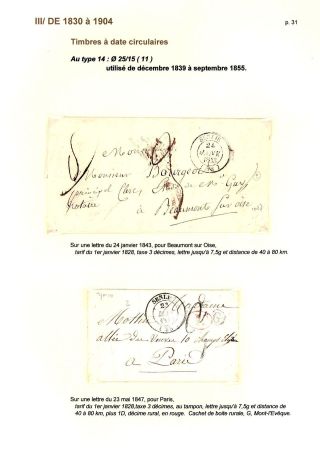 III/ DE 1830 à 1904
p. 31
Timbres à date circulaires
Au type 14 : Ø 25/15 ( 11 )
utilisé de décembre 1839 à septembre 1855.
Monsieur
Monsieur Bourgeois
principal Clerc de Me
notaire
à Beaumont sur oise
Sur une lettre du 24 janvier 1843, pour Beaumont sur Oise,
tarif du 1er janvier 1828, taxe 3 décimes, lettre jusqu'à 7,5g et distance de 40 à 80 km.
SENLIS
23
Madame
à Paris
Sur une lettre du 23 mai 1847, pour Paris,
tarif du 1er janvier 1828,taxe 3 décimes, au tampon, lettre jusqu'à 7,5g et distance de
40 à 80 km, plus 1D, décime rural, en rouge. Cachet de boite rurale, G, Mont-l'Evêque.